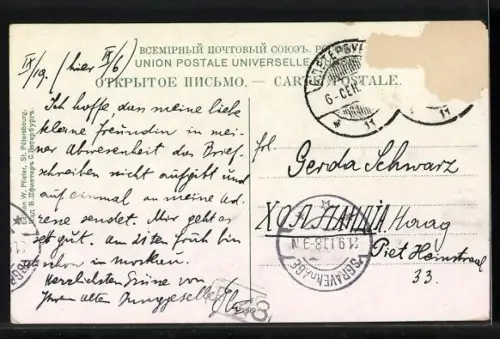 ВСЕМІРНЫЙ ПОЧТОВЫЙ СОЮЗЪ.
UNION POSTALE UNIVERSELLE.
ОТКРЫТОЕ ПИСЬМО. — CARTE POSTALE.
IX/19. (hier IX/6)
Ich hoffe dass meine liebe
kleine Freundin in mei-
ner Abwesenheit das Brief-
schreiben nicht aufgibt und
auf einmal an meine Ad-
resse sendet. Mir geht es
gut. Am 21ten früh bin
schon in Moskau.
Herzlichsten Grüsse von
Ihrem alten Junggesellen
Frl.
Gerda Schwarz
ХОЛЛАНДІЯ, Haag
Piet Heinstraat
33.
6-СЕН.
11
'S-GRAVENHAGE
W. Pfister, St. Pétersbourg.